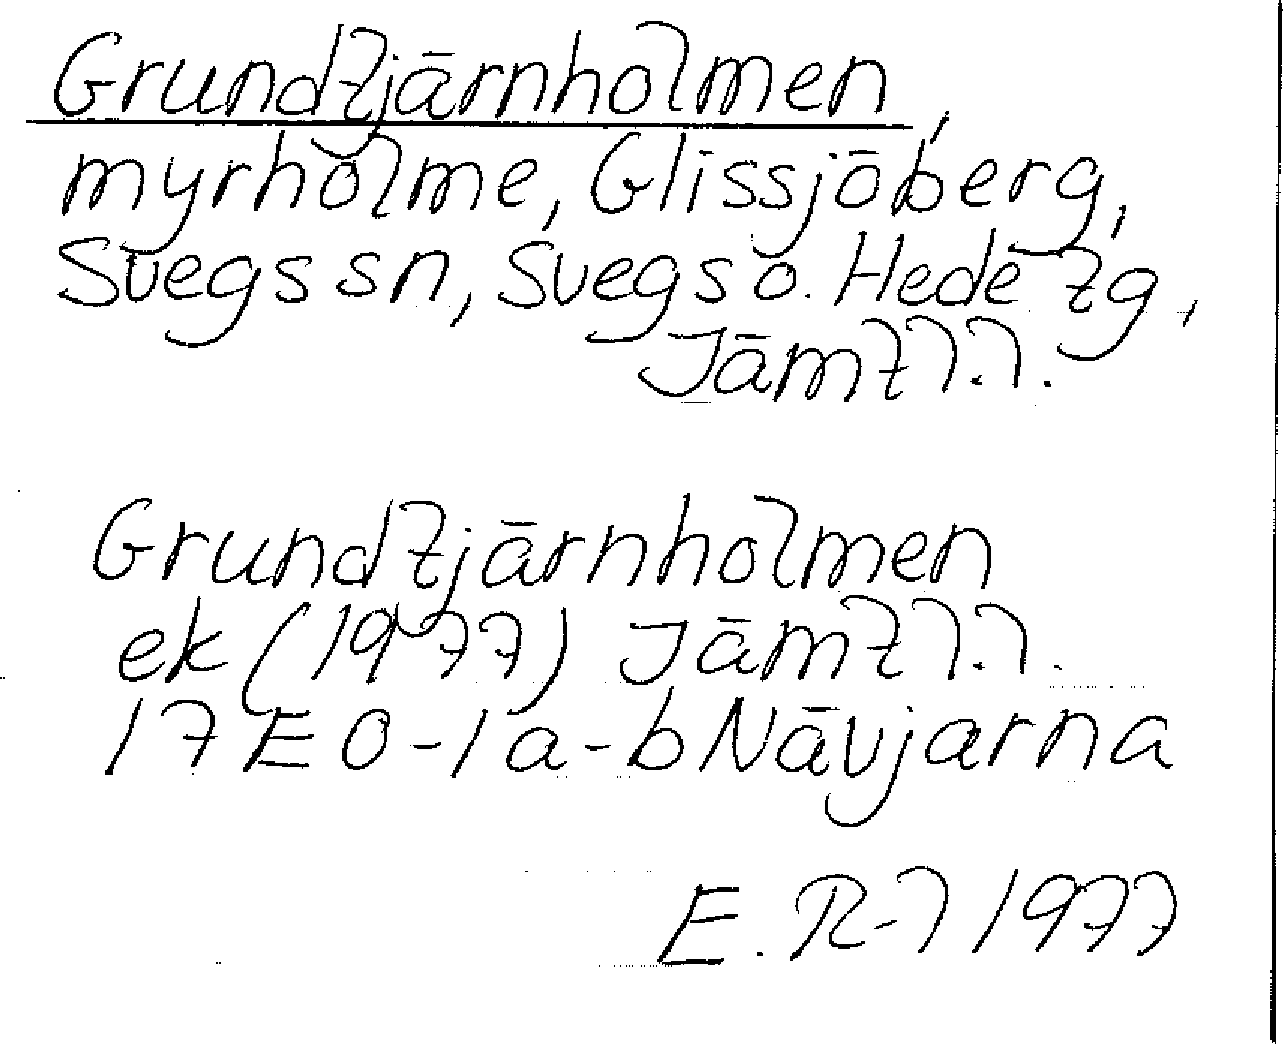 Grundtjärnholmen,
myrholme, Glissjöberg,
Svegs sn, Svegs o. Hede tg,
Jämtl.l.
Grundtjärnholmen
ek (1977) Jämtl.l.
17E 0-1a-b Nävjarna
E. R-l 1977